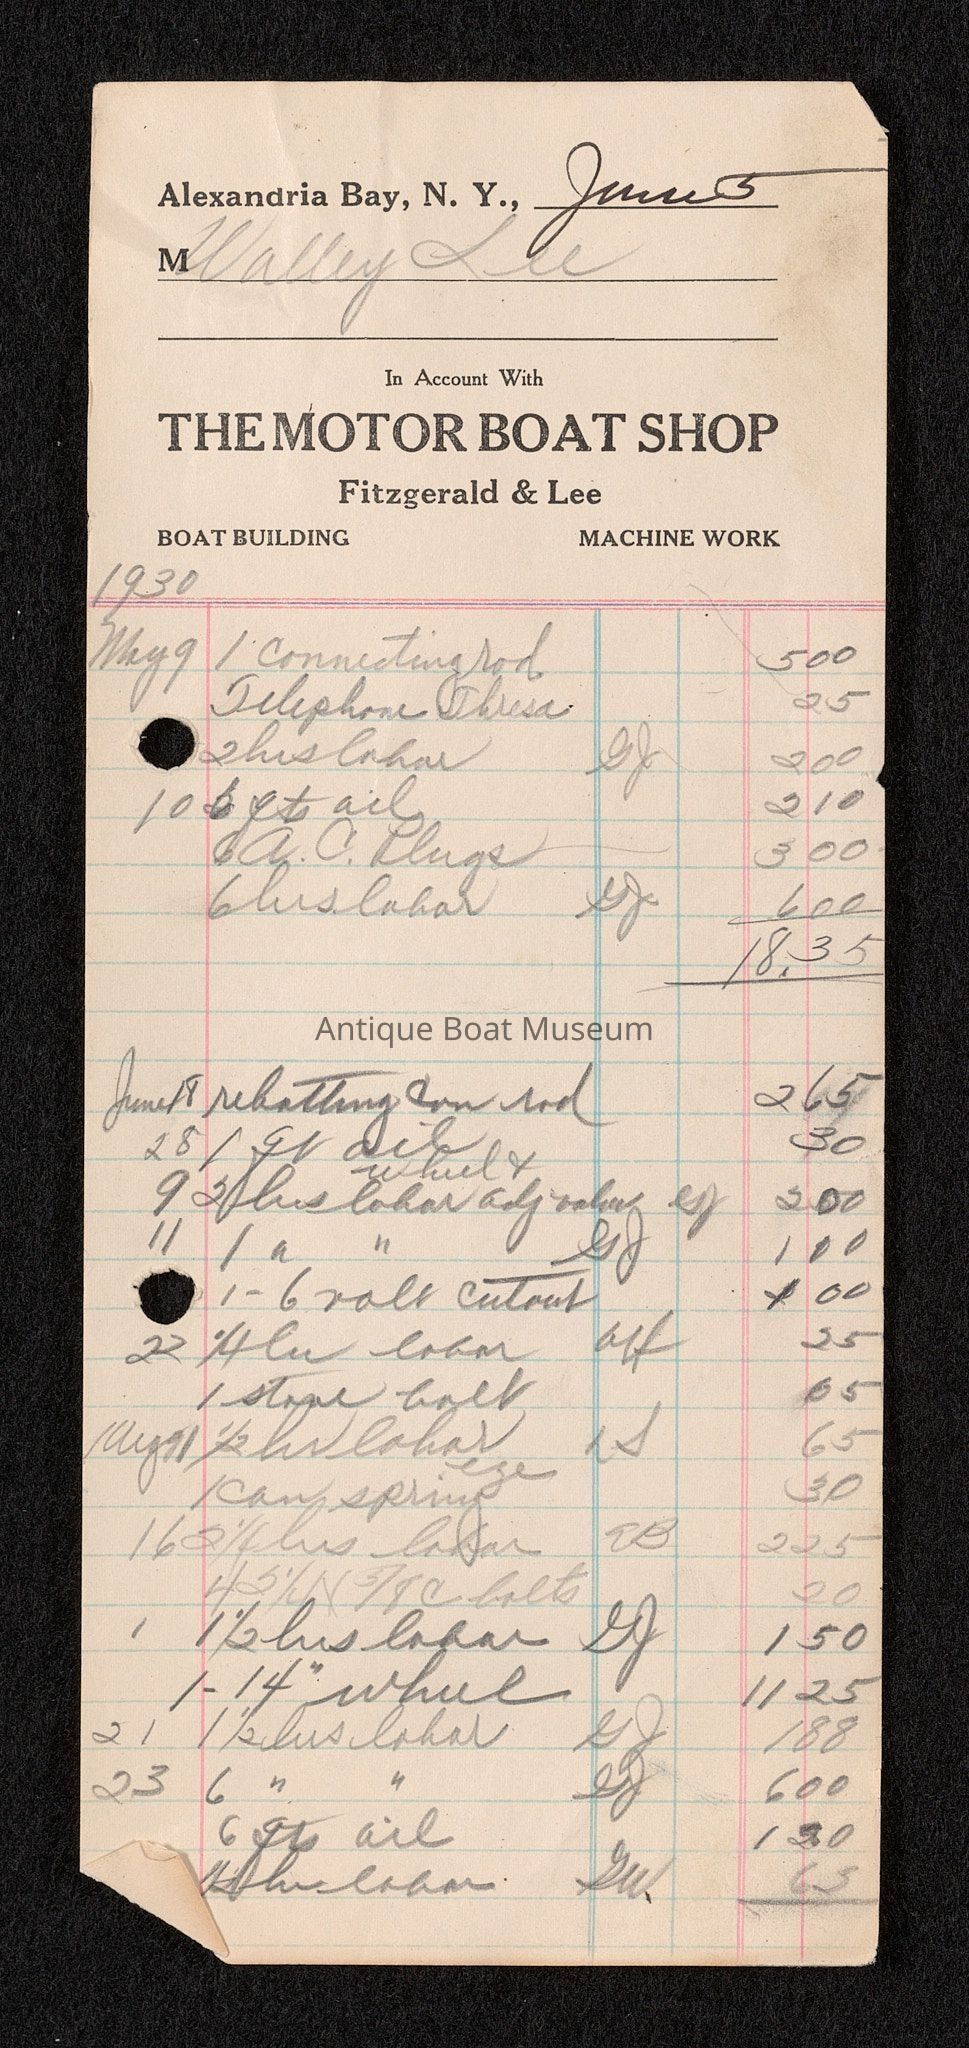 Alexandria Bay, N. Y., June 5
M Walley Lee
In Account With
THE MOTOR BOAT SHOP
Fitzgerald & Lee
BOAT BUILDING MACHINE WORK
1930
May 9 1 connecting rod 500
Telephone Thresa 25
2 hrs labor GJ 200
10 6 qts oil 210
6 A. C. Plugs 300
6 hrs. labor GJ 600
18.35
Antique Boat Museum
June 18 con rod 265
28 1 qt oil 30
wheel &
9 2 hrs labor adj valves GJ 200
11 1 " " GJ 100
1 - 6 volt cutout 00
22 1/4 hr labor 25
1 stove bolt 05
1/2 hr labor 1S 65
1 can spring eze 30
16 2 1/4 hrs labor 225
4 5/8 C bolts 20
1 1 1/2 hrs labor GJ 150
1 - 14" wheel 11 25
21 1 1/2 hrs labor GJ 188
23 6 " " GJ 600
6 qts oil
hr labor GW. 63